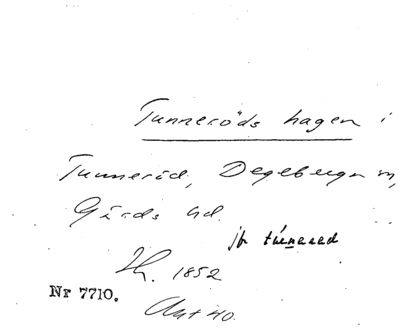 Tunneröds hagen i
Tunneröd, Degeberga sn,
Gärds hd.
jfr túnnarød
Hr. 1852
Nr 7710.